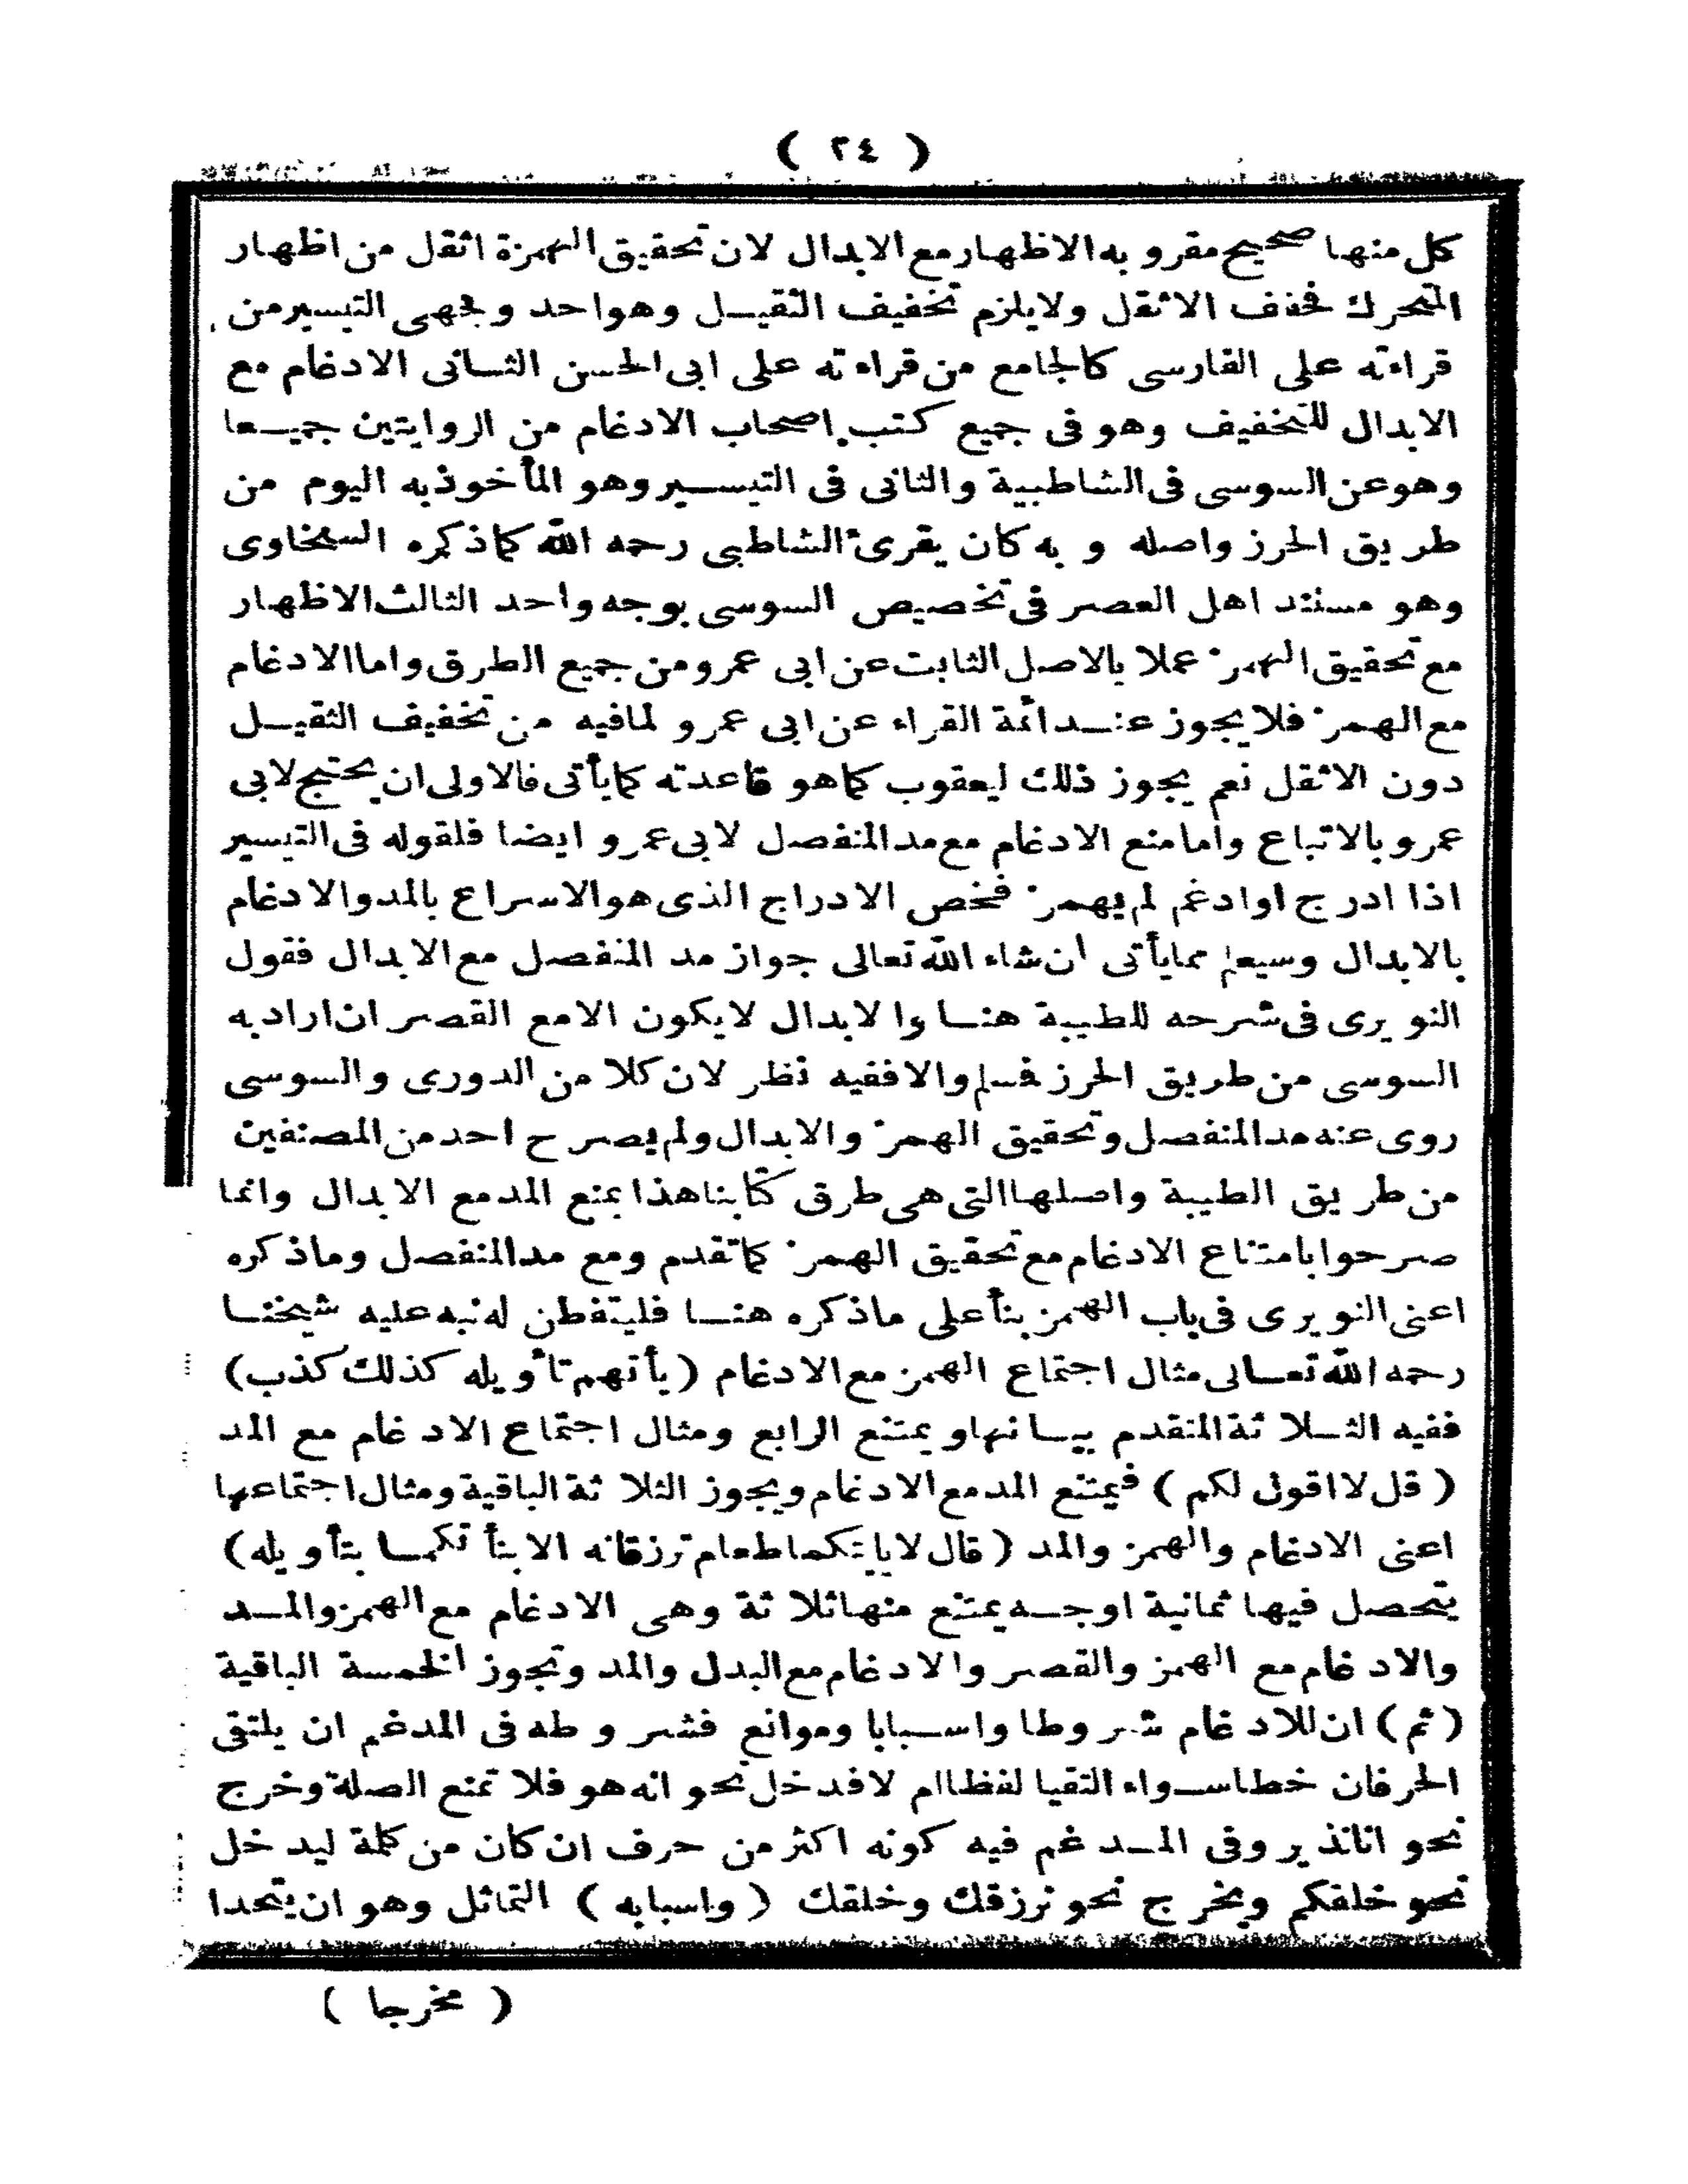 ( ٢٤ )
كل منها صحيح مقرو به الاظهار مع الابدال لان تحقيق الهمزة اثقل من اظهار
المتحرك فخفف الاثقل ولايلزم تخفيف الثقيل وهو احد وجهى التيسير من
قراءته على الفارسى كالجامع من قراءته على ابى الحسن الثانى الادغام مع
الابدال للتخفيف وهو فى جميع كتب اصحاب الادغام من الروايتين جميعا
وهو عن السوسى فى الشاطبية والثانى فى التيسير وهو المأخوذ به اليوم من
طريق الحرز واصله و به كان يقرئ الشاطبى رحمه الله كما ذكره السخاوى
وهو مستند اهل العصر فى تخصيص السوسى بوجه واحد الثالث الاظهار
مع تحقيق الهمز عملا بالاصل الثابت عن ابى عمرو من جميع الطرق واما الادغام
مع الهمز فلا يجوز عند ائمة القراء عن ابى عمرو لمافيه من تخفيف الثقيل
دون الاثقل نعم يجوز ذلك ليعقوب كما هو قاعدته كما يأتى فالاولى ان يحتج لابى
عمرو بالاتباع واما منع الادغام مع مد المنفصل لابى عمرو ايضا فلقوله فى التيسير
اذا ادرج او ادغم لم يهمز فخص الادراج الذى هو الاسراع بالمد والادغام
بالابدال وسيعلم مما يأتى ان شاء الله تعالى جواز مد المنفصل مع الابدال فقول
النويرى فى شرحه للطيبة هنا والابدال لايكون الامع القصر ان اراد به
السوسى من طريق الحرز فسلم والا ففيه نظر لان كلا من الدورى والسوسى
روى عنه مد المنفصل وتحقيق الهمز والابدال ولم يصرح احد من المصنفين
من طريق الطيبة واصلها التى هى طرق كتابنا هذا بمنع المد مع الابدال وانما
صرحوا بامتناع الادغام مع تحقيق الهمز كما تقدم ومع مد المنفصل وما ذكره
اعنى النويرى فى باب الهمز بنأ على ماذكره هنا فليتفطن له نبه عليه شيخنا
رحمه الله تعالى مثال اجتماع الهمز مع الادغام ( يأتهم تأويله كذلك كذب)
ففيه الثلاثة المتقدم بيانها و يمتنع الرابع ومثال اجتماع الادغام مع المد
( قل لا اقول لكم ) فيمتنع المد مع الادغام ويجوز الثلاثة الباقية ومثال اجتماعها
اعنى الادغام والهمز والمد ( قال لا يا تيكما طعام ترزقانه الا نبأ تكما بتأويله)
يتحصل فيها ثمانية اوجه يمتنع منها ثلاثة وهى الادغام مع الهمز والمد
والادغام مع الهمز والقصر والادغام مع البدل والمد وتجوز الخمسة الباقية
( ثم ) ان للادغام شروطا واسبابا وموانع فشروطه فى المدغم ان يلتقى
الحرفان خطا سواء التقيا لفظا ام لا فدخل نحو انه هو فلا تمنع الصلة وخرج
نحو انا نذير وفى المدغم فيه كونه اكثر من حرف ان كان من كلمة ليدخل
نحو خلقكم ويخرج نحو نرزقك وخلقك ( واسبابه ) التماثل وهو ان يتحدا
( مخرجا )